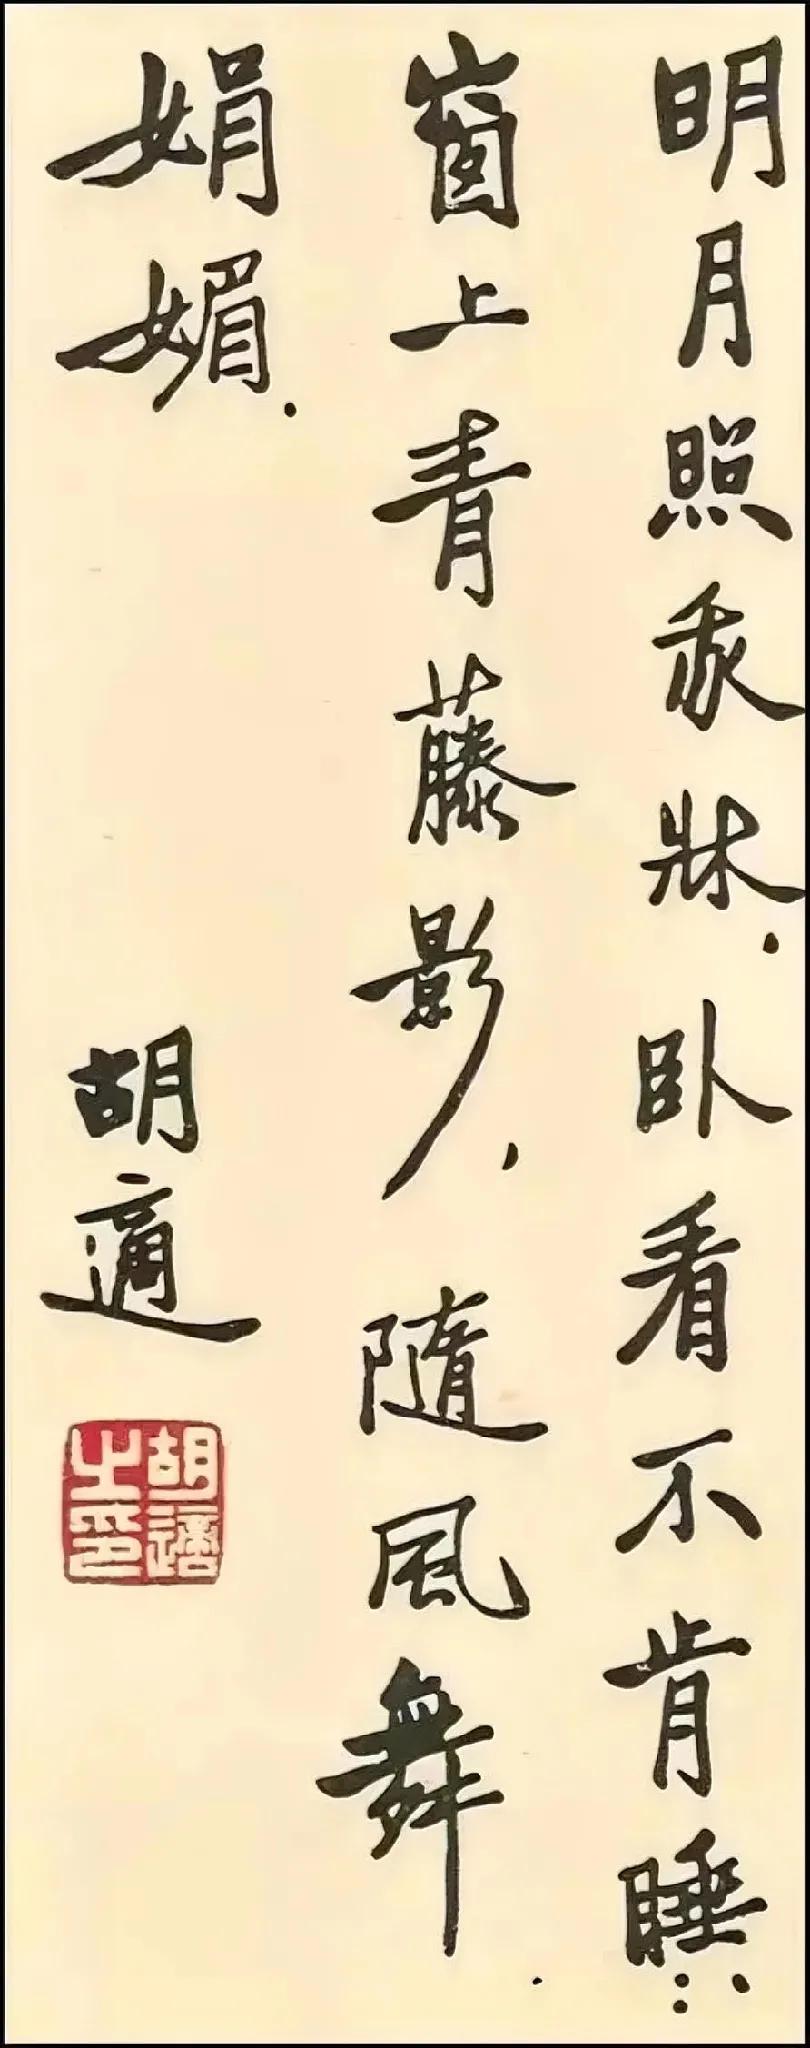 明月照我牀.卧看不肯睡:.
窗上青藤影.隨風舞.
娟媚.
胡適
胡適之印